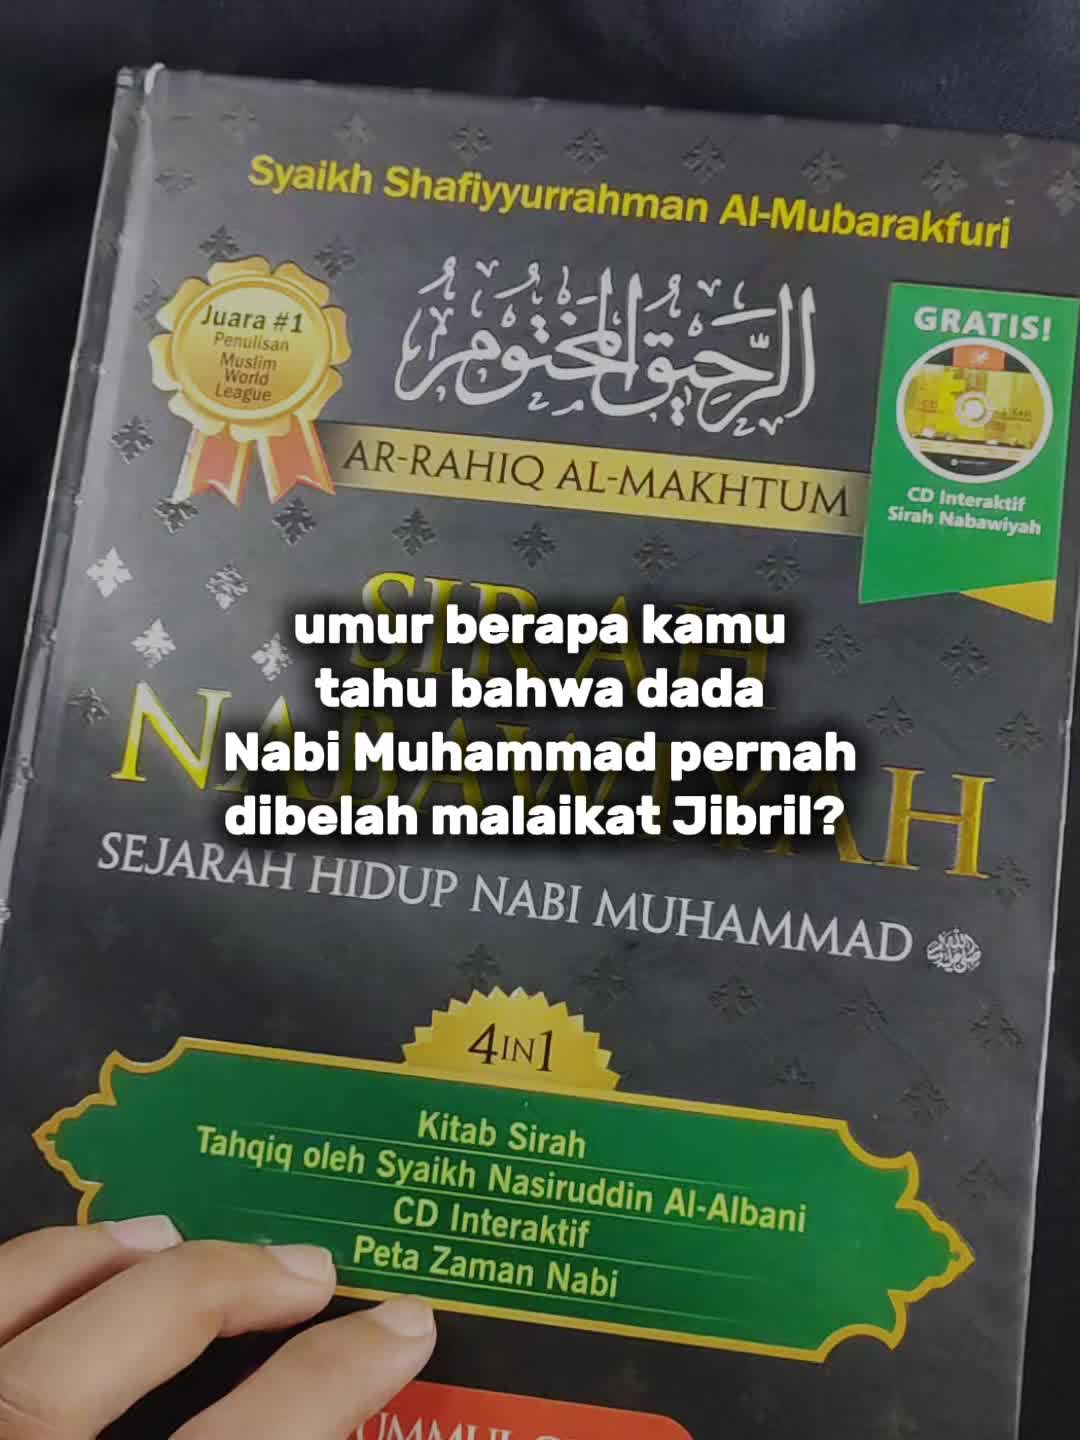 Syaikh Shafiyyurrahman Al-Mubarakfuri
Juara #1
Penulisan
Muslim
World
League
الرحيق المختوم
GRATIS!
CD Interaktif
Sirah Nabawiyah
AR-RAHIQ AL-MAKHTUM
SIRAH
NABAWIYAH
umur berapa kamu
tahu bahwa dada
Nabi Muhammad pernah
dibelah malaikat Jibril?
SEJARAH HIDUP NABI MUHAMMAD ﷺ
4 IN 1
Kitab Sirah
Tahqiq oleh Syaikh Nasiruddin Al-Albani
CD Interaktif
Peta Zaman Nabi